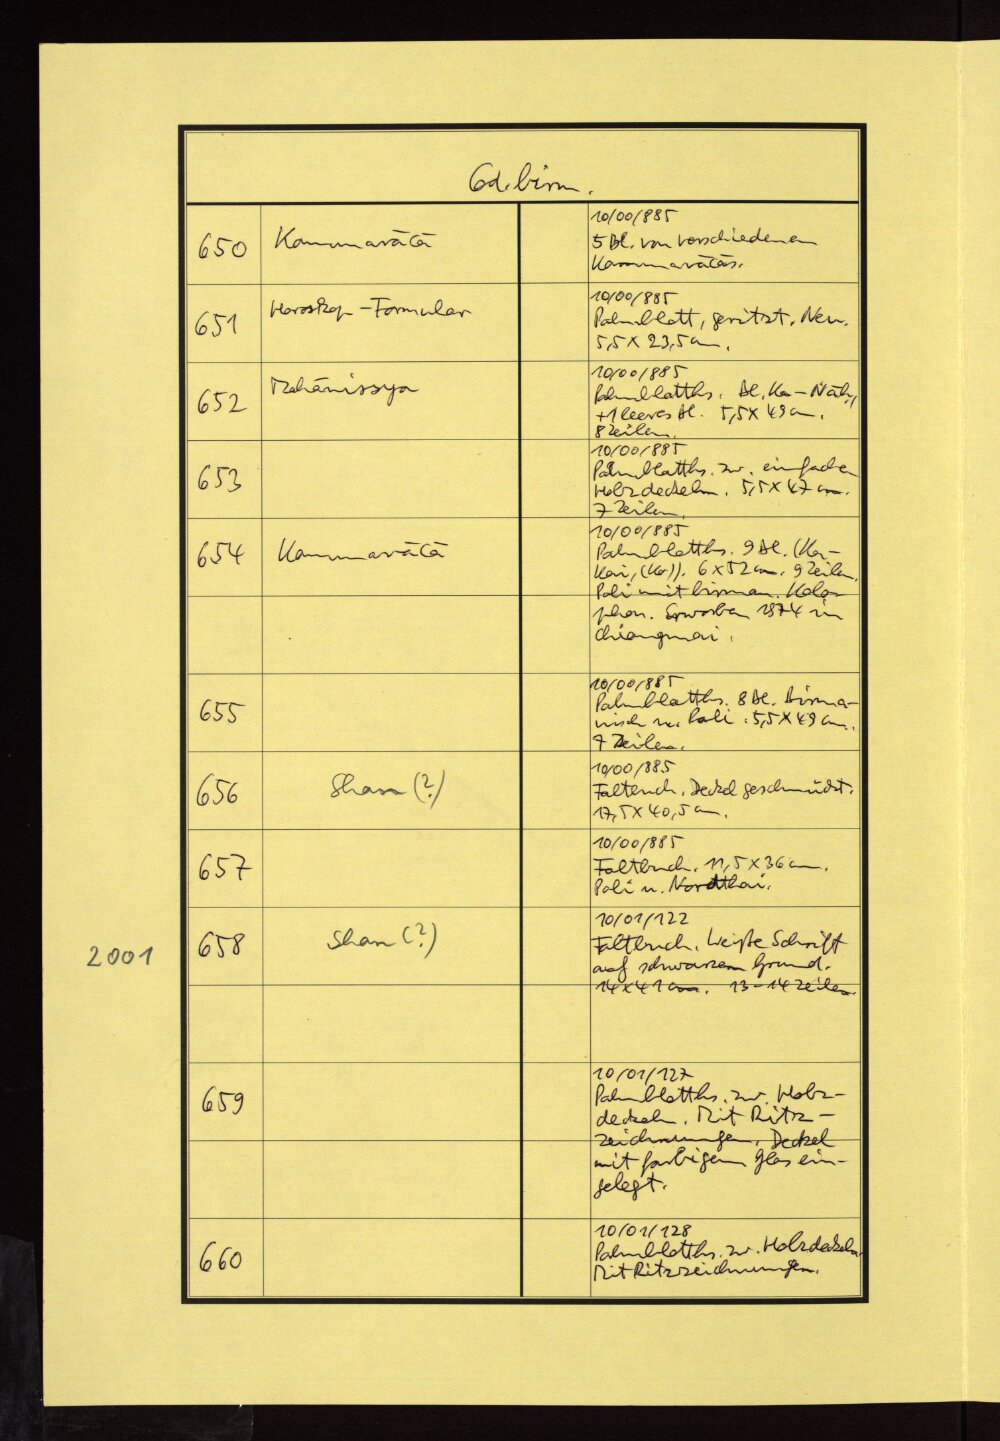 Cod. birm.
650 Kammavācā
10/00/885
5 Bl. von verschiedenen
Kammavācās.
651 Horoskop-Formular
10/00/885
Palmblatt, geritzt. Neu.
5,5 x 23,5 cm.
652 Mahānissya
10/00/885
Palmblatths. Bl. Ka-
+1 leeres Bl. 5,5 x 49 cm.
8 Zeilen.
653
10/00/885
Palmblatths. zw. einfachen
Holzdeckeln. 5,5 x 47 cm.
7 Zeilen.
654 Kammavācā
10/00/885
Palmblatths. 9 Bl. (Ka-
Kai, (Ko)). 6 x 52 cm. 9 Zeilen.
Pali mit birman. Kolo-
phon. Erworben 1974 in
Chiangmai.
655
10/00/885
Palmblatths. 8 Bl. Birma-
nisch u. Pali. 5,5 x 49 cm.
7 Zeilen.
656 Shan (?)
10/00/885
Faltbuch. Deckel geschmückt.
17,5 x 40,5 cm.
657
10/00/885
Faltbuch. 11,5 x 36 cm.
Pali u. Nordthai.
2001
658 Shan (?)
10/01/122
Faltbuch. Weiße Schrift
auf schwarzem Grund.
14 x 41 cm. 13-14 Zeilen.
659
10/01/127
Palmblatths. zw. Holz-
deckeln. Mit Ritz-
zeichnungen. Deckel
mit farbigem Glas ein-
gelegt.
660
10/01/128
Palmblatths. zw. Holzdeckeln.
Mit Ritzzeichnungen.